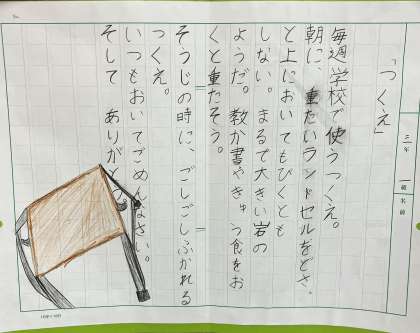 「つくえ」
三年 一組 名前
毎週学校で使うつくえ。
朝に、重たいランドセルをどさ、
と上においてもびくとも
しない。まるで大きい岩の
ようだ。教か書やきゅう食をお
くと重たそう。
そうじの時に、ごしごしふかれる
つくえ。
いつもおいてごめんなさい。
そして ありがとう